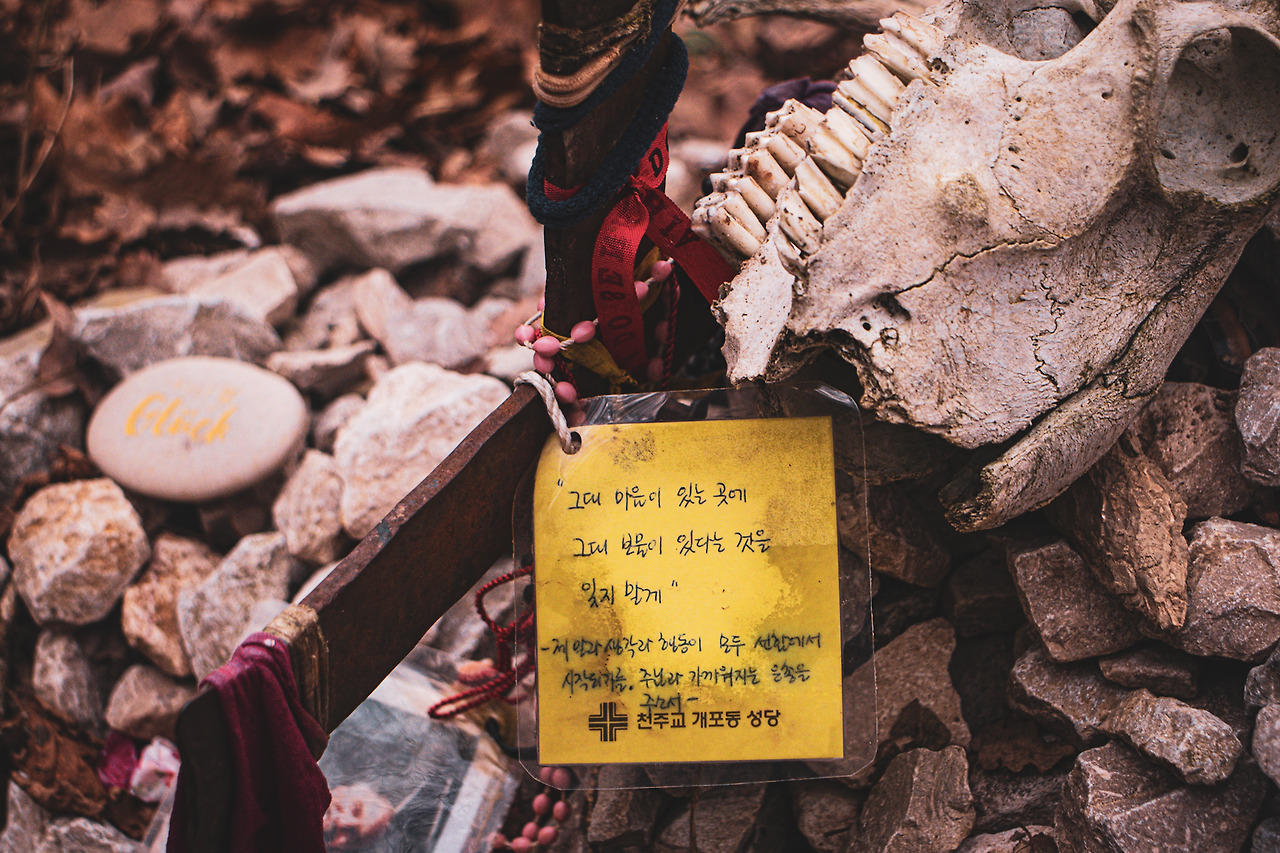 Glück
"그대 마음이 있는 곳에
그대 보물이 있다는 것을
잊지 말게"
-제 말과 생각과 행동이 모두 선함에서
시작되기를. 주님과 가까워지는 은총을
주소서-
천주교 개포동 성당